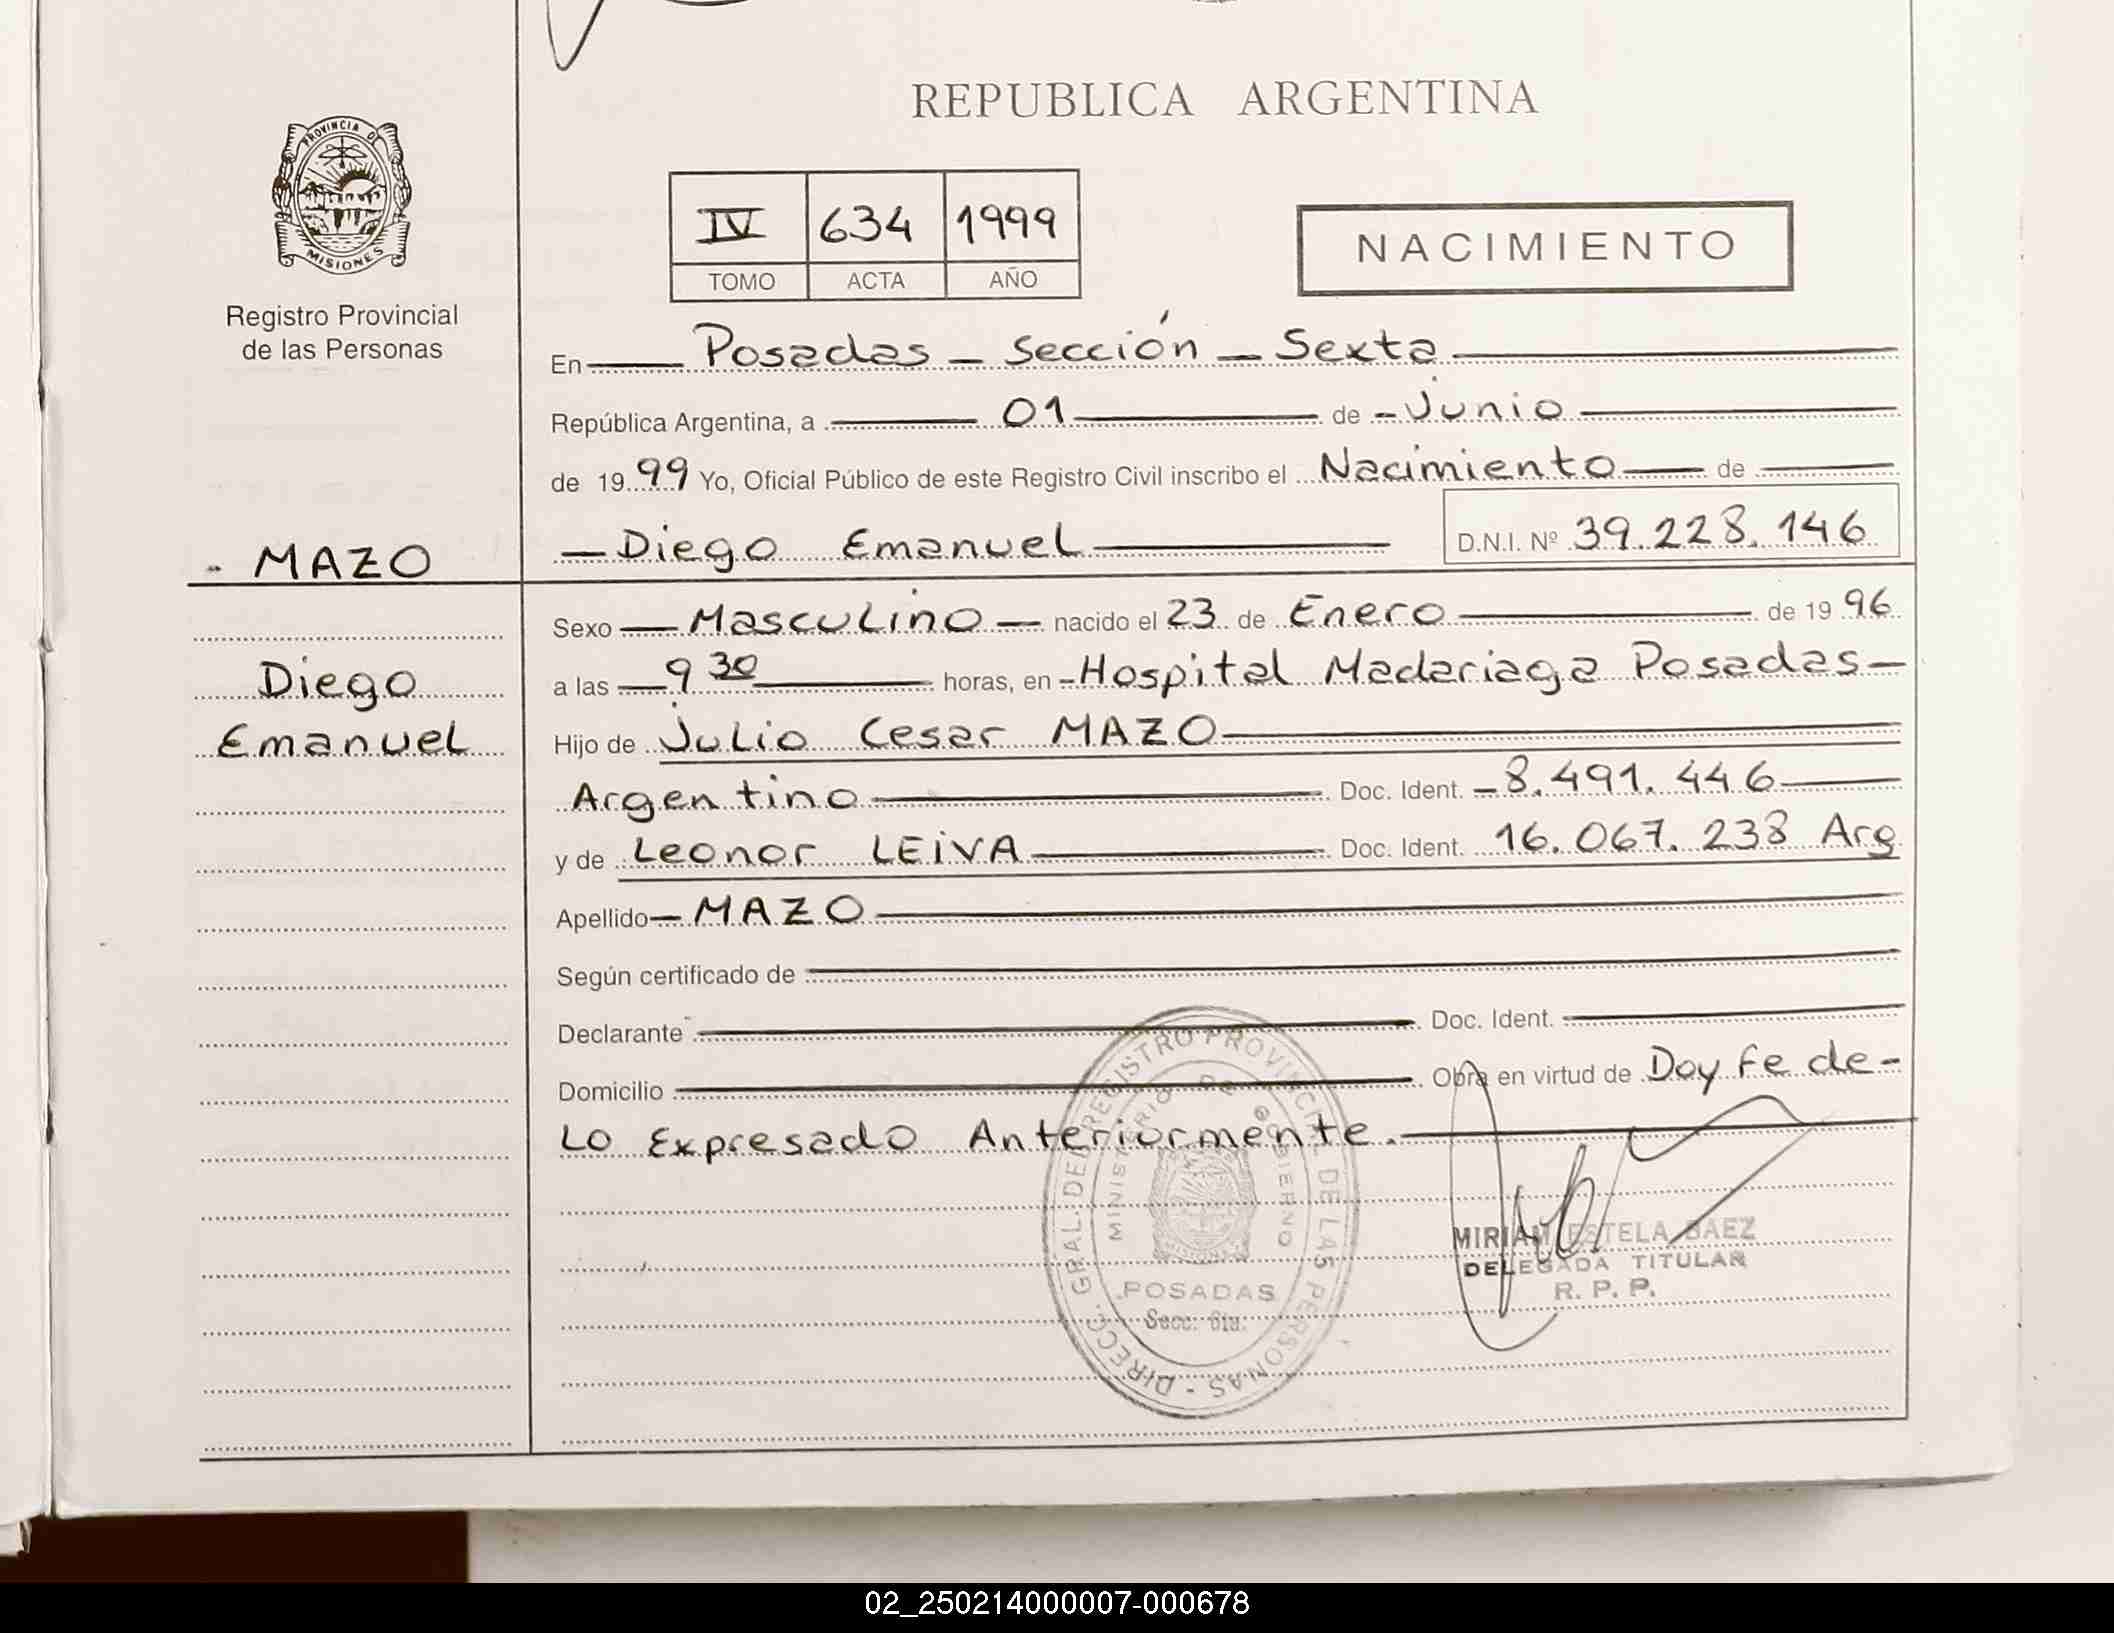 REPUBLICA ARGENTINA
PROVINCIA DE
MISIONES
Registro Provincial
de las Personas
IV 634 1999
TOMO ACTA AÑO
NACIMIENTO
En Posadas - Sección - Sexta
República Argentina, a 01 de - Junio
de 1999 Yo, Oficial Público de este Registro Civil inscribo el Nacimiento de
- MAZO
- Diego Emanuel D.N.I. Nº 39.228.146
Diego
Emanuel
Sexo - Masculino - nacido el 23 de Enero de 1996
a las 9 30 horas, en - Hospital Madariaga Posadas -
Hijo de Julio Cesar MAZO
Argentino Doc. Ident. - 8.491.446
y de Leonor LEIVA Doc. Ident. 16.067.238 Arg
Apellido - MAZO
Según certificado de
Declarante Doc. Ident.
Domicilio Obra en virtud de Doy Fe de -
Lo Expresado Anteriormente.
DIRECC. GRAL. DEL REGISTRO PROVINCIAL DE LAS PERSONAS -
MINISTERIO DE GOBIERNO
MISIONES
POSADAS
Secc. 6ta.
MIRIAM ESTELA BAEZ
DELEGADA TITULAR
R. P. P.
02_250214000007-000678